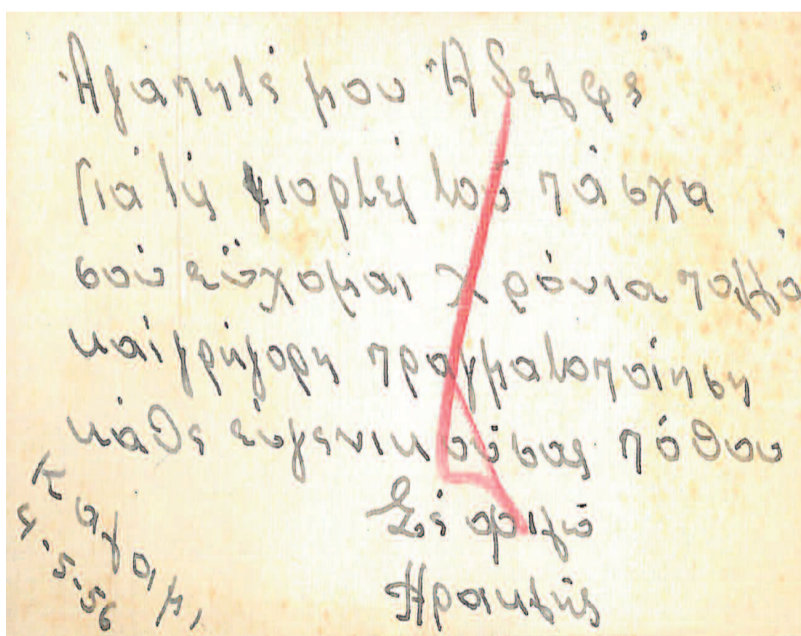 Ἀγαπητέ μου Ἀδελφέ
Γιά τίς γιορτές τοῦ πάσχα
σοῦ εὔχομαι χρόνια πολλά
καί γρήγορη πραγματοποίηση
κάθε εὐγενικοῦ σας πόθου
Σέ φιλῶ
Ηρακλῆς
Καλαμι,
4-5-56